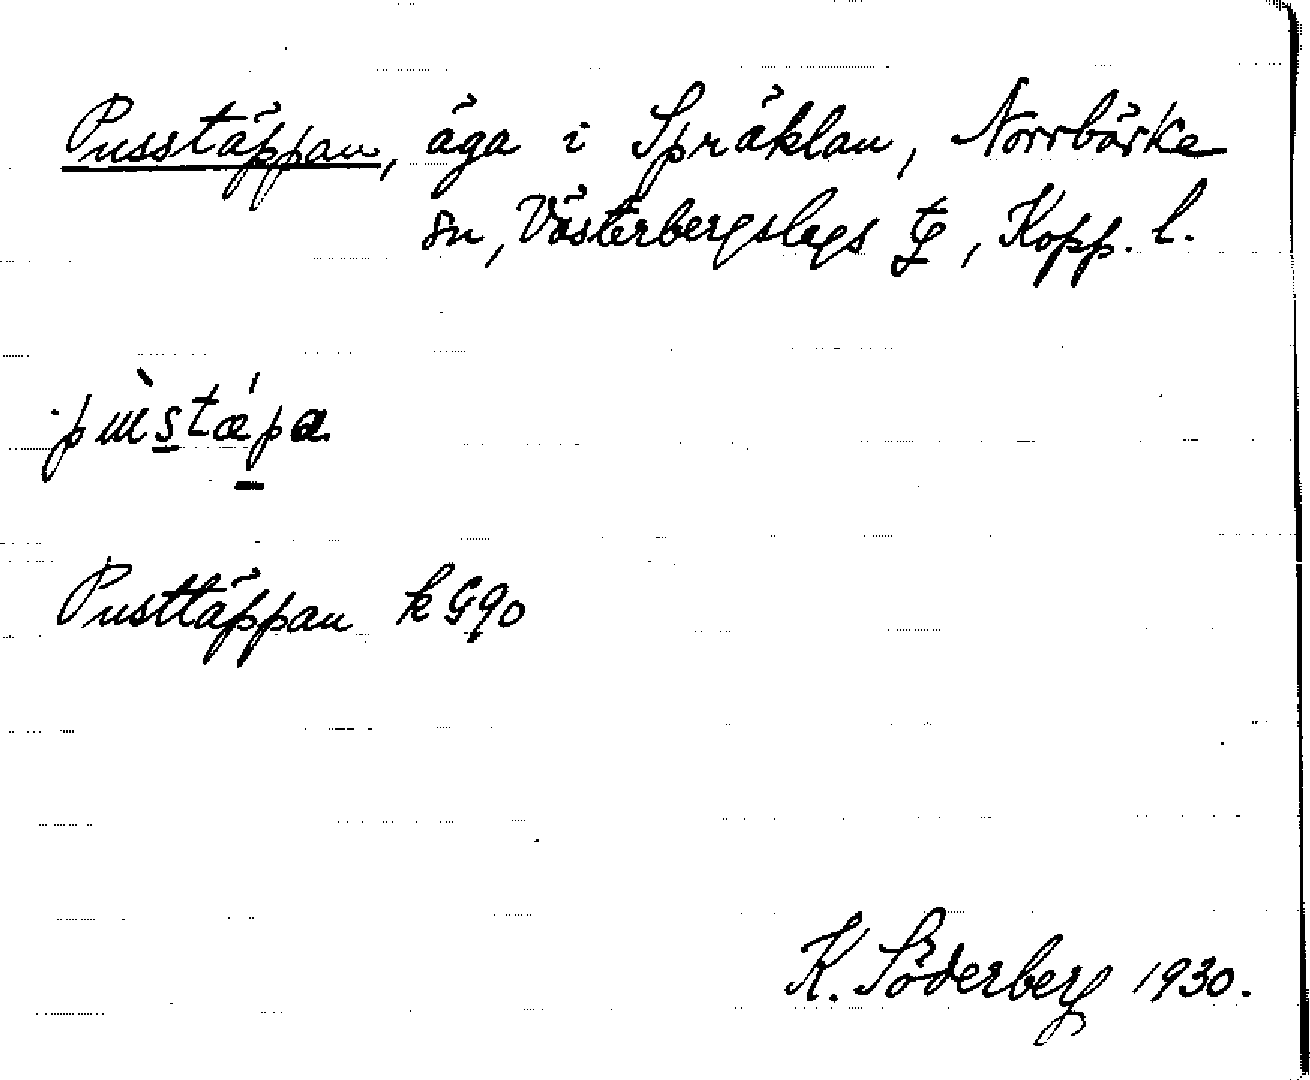 Pusstäppan, äga i Spräklan, Norrbärke
sn, Västerbergslags tg, Kopp. l.
Pusttäppan k G90
K. Söderberg 1930.